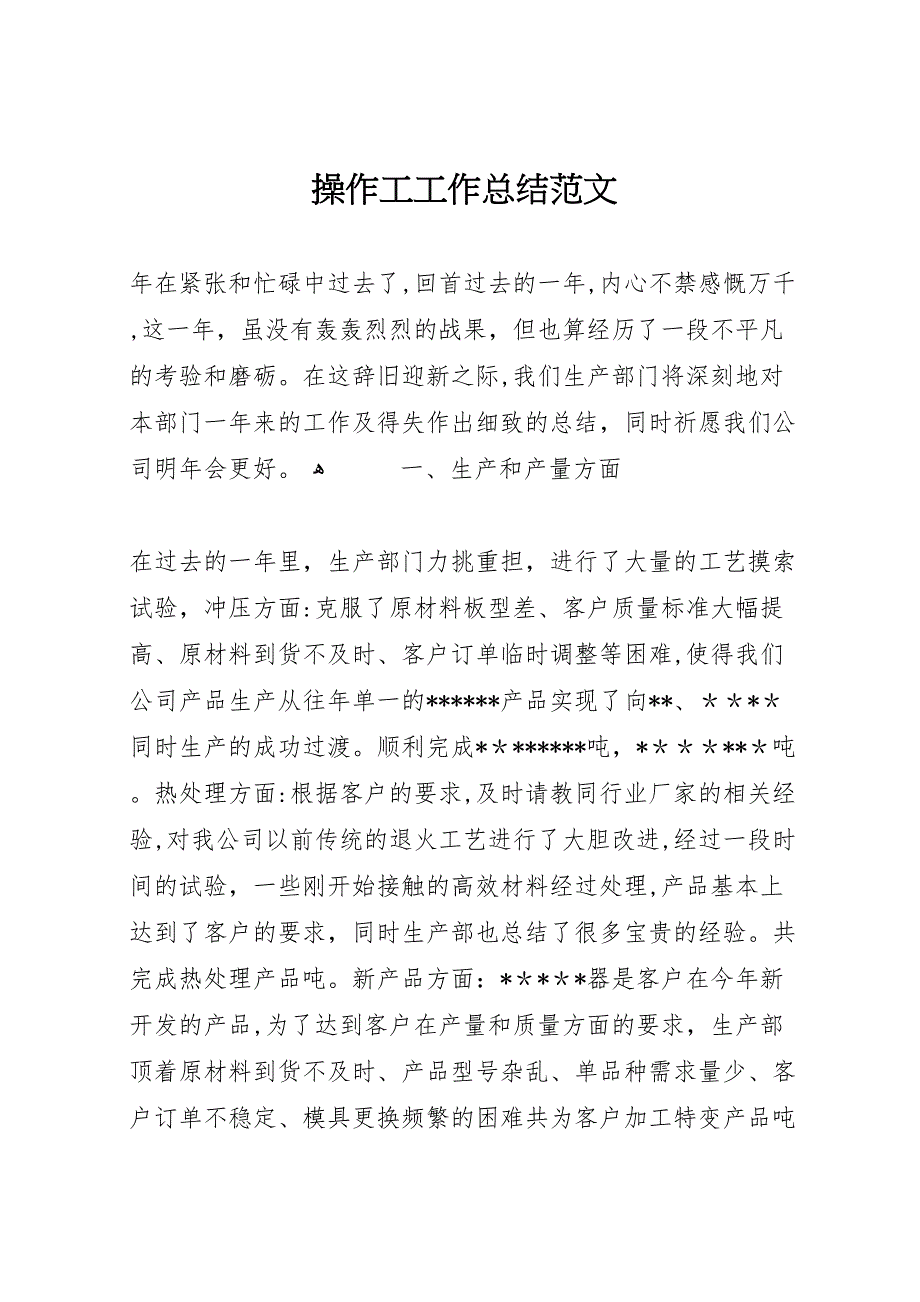 操作工工作总结范文
年在紧张和忙碌中过去了,回首过去的一年,内心不禁感慨万千
,这一年，虽没有轰轰烈烈的战果，但也算经历了一段不平凡
的考验和磨砺。在这辞旧迎新之际,我们生产部门将深刻地对
本部门一年来的工作及得失作出细致的总结，同时祈愿我们公
司明年会更好。 ﻫ 一、生产和产量方面
在过去的一年里，生产部门力挑重担，进行了大量的工艺摸索
试验，冲压方面:克服了原材料板型差、客户质量标准大幅提
高、原材料到货不及时、客户订单临时调整等困难,使得我们
公司产品生产从往年单一的******产品实现了向**、＊＊*＊
同时生产的成功过渡。顺利完成*＊*******吨，*＊＊＊**＊吨
。热处理方面:根据客户的要求,及时请教同行业厂家的相关经
验,对我公司以前传统的退火工艺进行了大胆改进,经过一段时
间的试验，一些刚开始接触的高效材料经过处理,产品基本上
达到了客户的要求，同时生产部也总结了很多宝贵的经验。共
完成热处理产品吨。新产品方面：*＊*＊*器是客户在今年新
开发的产品,为了达到客户在产量和质量方面的要求，生产部
顶着原材料到货不及时、产品型号杂乱、单品种需求量少、客
户订单不稳定、模具更换频繁的困难共为客户加工特变产品吨